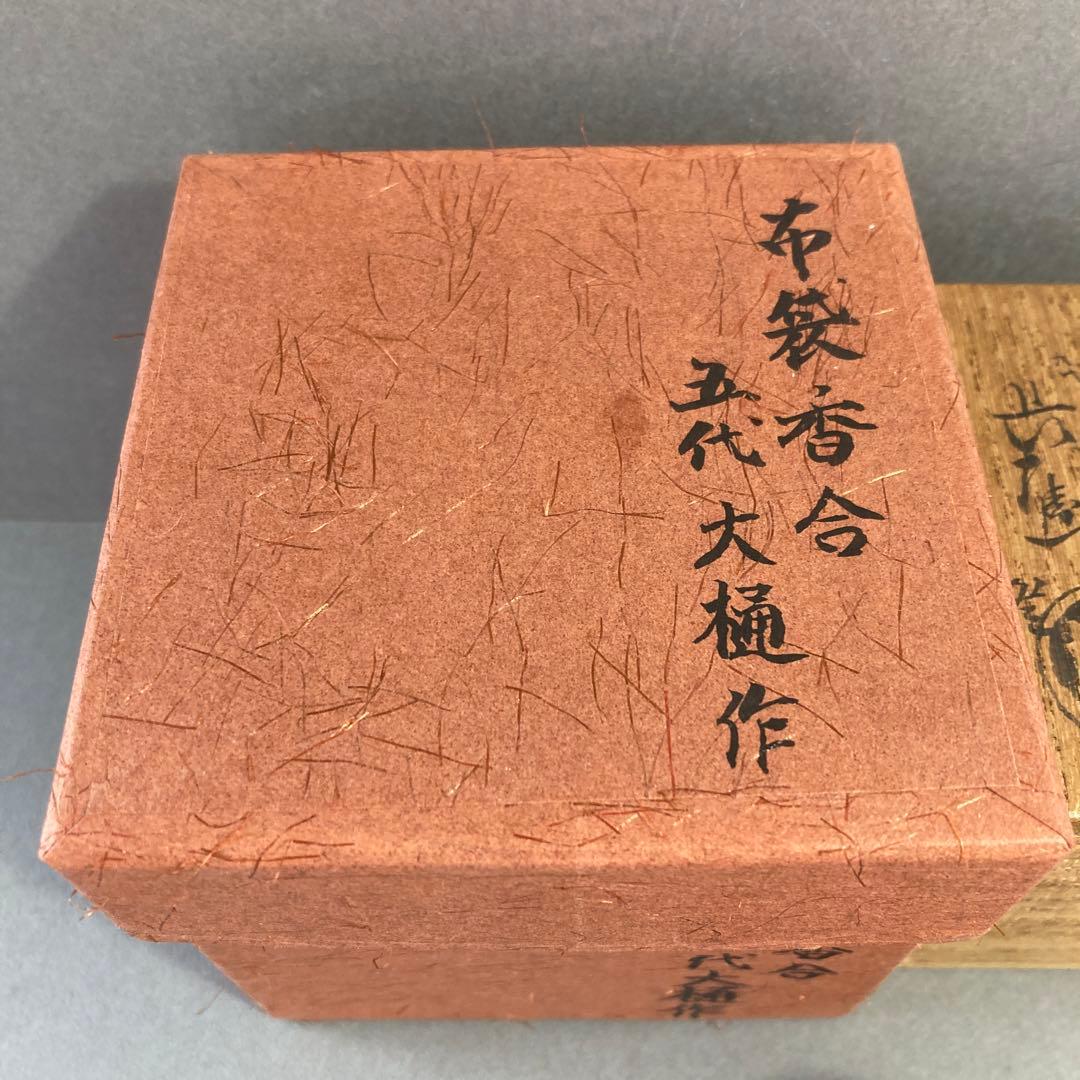 布袋香合
五代大樋作
香合
代大樋作